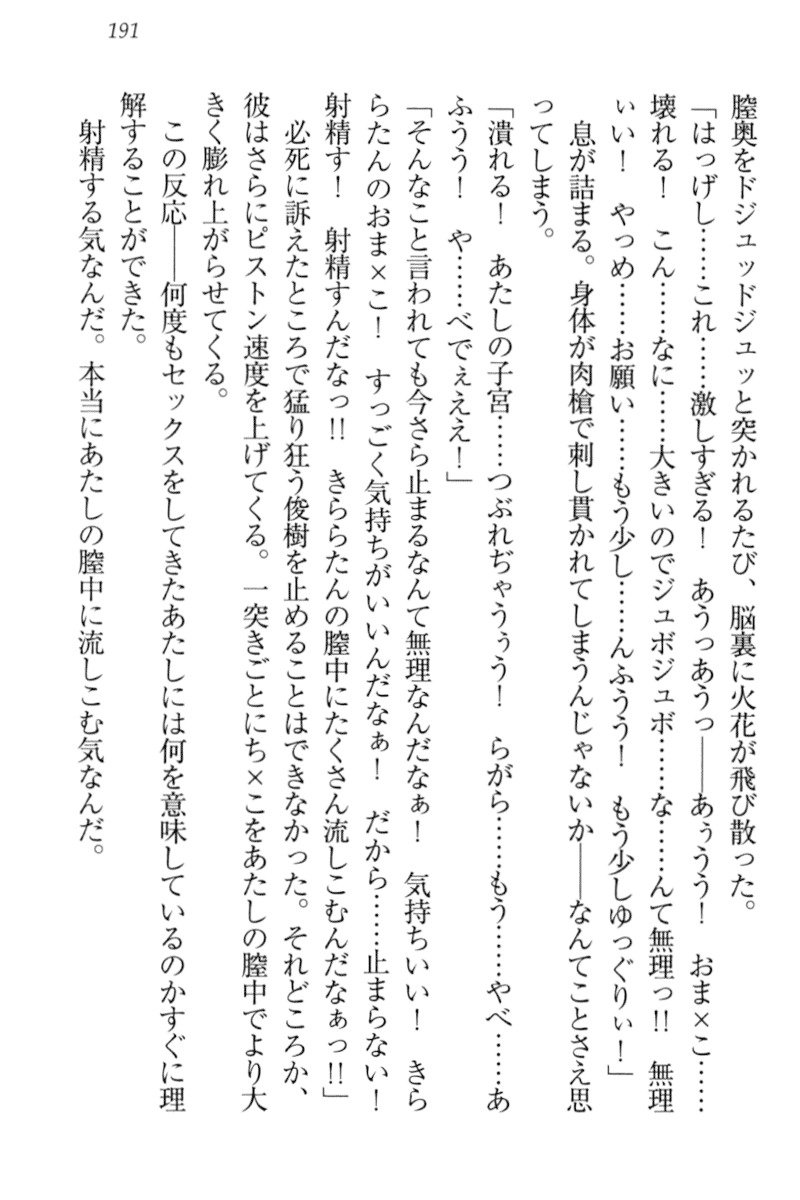 191
膣奥をドジュッドジュッと突かれるたび、脳裏に火花が飛び散った。
「はっげし……これ……激しすぎる！　あうっあうっ――あぅうう！　おま×こ……
壊れる！　こん……なに……大きいのでジュボジュボ……な……んて無理っ!!　無理
ぃい！　やっめ……お願い……もう少し……んふうう！　もう少しゆっぐりぃ！」
　息が詰まる。身体が肉槍で刺し貫かれてしまうんじゃないか――なんてことさえ思
ってしまう。
「潰れる！　あたしの子宮……つぶれぢゃうぅう！　らがら……もう……やべ……あ
ふうう！　や……べでぇええ！」
「そんなこと言われても今さら止まるなんて無理なんだなぁ！　気持ちいい！　きら
らたんのおま×こ！　すっごく気持ちがいいんだなぁ！　だから……止まらない！
射精す！　射精すんだなっ!!　きららたんの膣中にたくさん流しこむんだなぁっ!!」
　必死に訴えたところで猛り狂う俊樹を止めることはできなかった。それどころか、
彼はさらにピストン速度を上げてくる。一突きごとにち×こをあたしの膣中でより大
きく膨れ上がらせてくる。
　この反応――何度もセックスをしてきたあたしには何を意味しているのかすぐに理
解することができた。
　射精する気なんだ。本当にあたしの膣中に流しこむ気なんだ。